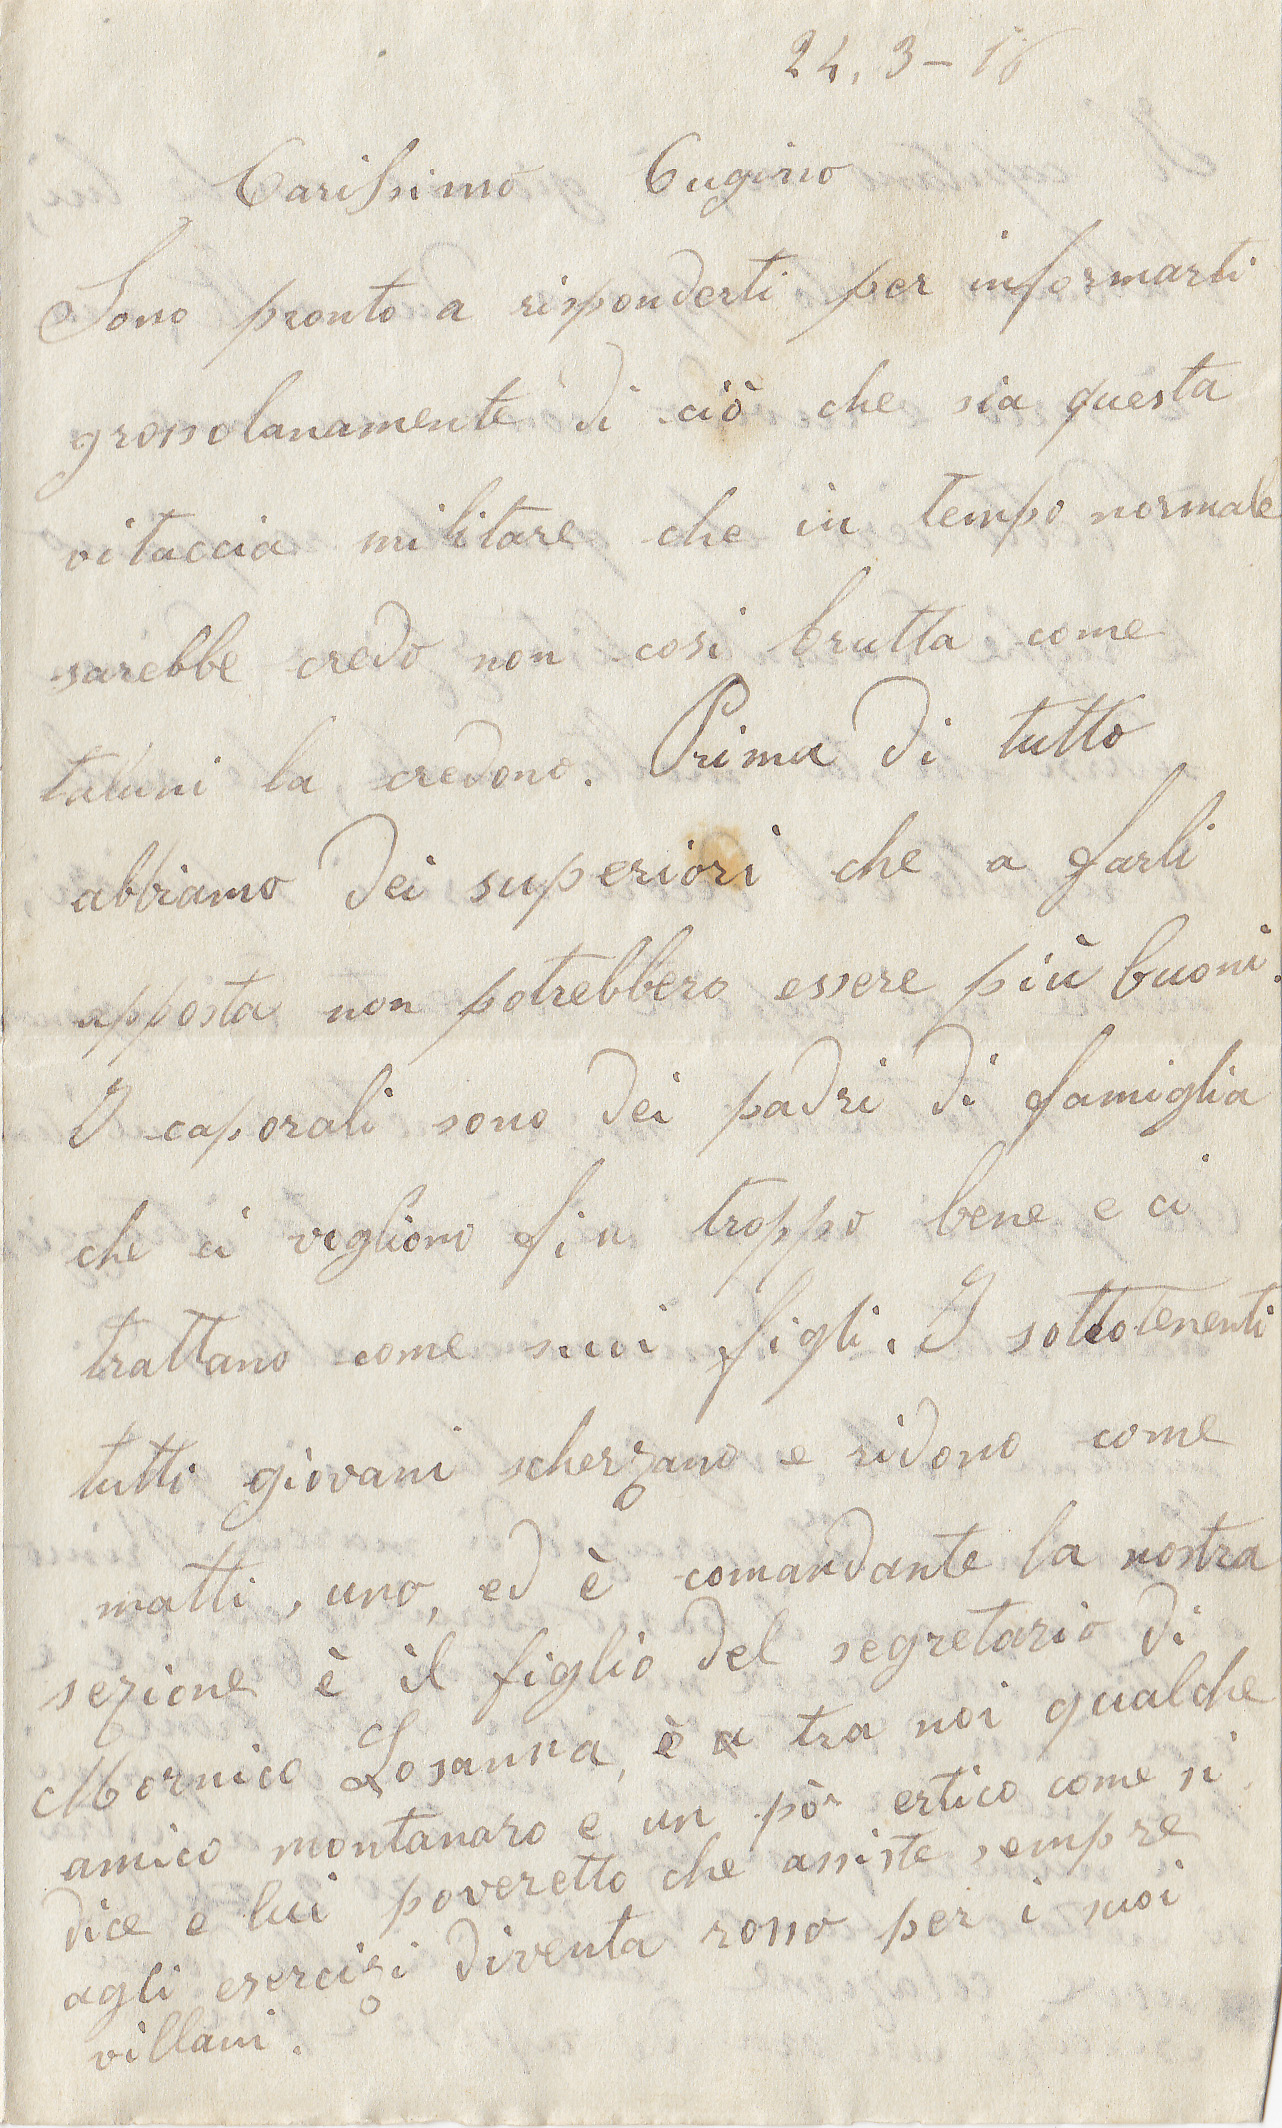 24. 3 - 16
Carissimo Cugino
Sono pronto a risponderti per informarti
grossolanamente di ciò che sia questa
vitaccia militare che in tempo normale
sarebbe credo non cosi brutta come
taluni la credono. Prima di tutto
abbiamo dei superiori che a farli
apposta non potrebbero essere più buoni.
I caporali sono dei padri di famiglia
che ci vogliono fin troppo bene e ci
trattano come suoi figli. I sottotenenti
tutti giovani scherzano e ridono come
matti, uno, ed è comandante la nostra
sezione è il figlio del segretario di
Mornico Losanna, è tra noi qualche
amico montanaro e un pò ertico come si
dice e lui poveretto che assiste sempre
agli esercizi diventa rosso per i suoi
villani.